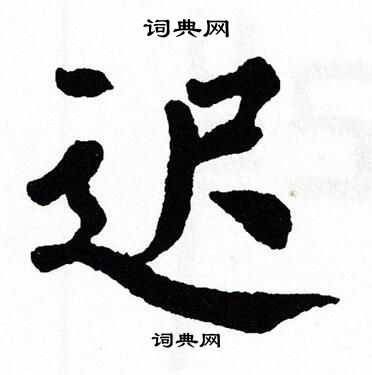 词典网
迟
词典网